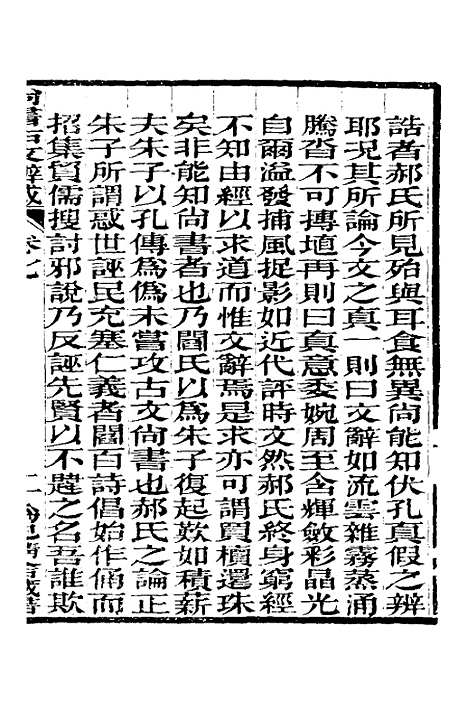 誥者郝氏所見殆與耳食無異尚能知伏孔真假之辨
耶況其所論今文之真一則曰文辭如流雲雜霧蒸涌
騰沓不可摶埴再則曰真意委婉周至含輝斂彩晶光
自爾溢發捕風捉影如近代評時文然郝氏終身窮經
不知由經以求道而惟文辭焉是求亦可謂買櫝還珠
矣非能知尚書者也乃閻氏以為朱子復起歎如積薪
夫朱子以孔傳為偽未嘗攻古文尚書也郝氏之論正
朱子所謂惑世誣民充塞仁義者閻百詩倡始作俑而
招集貿儒搜討邪說乃反誣先賢以不韙之名吾誰欺
尚書古文辨惑 卷七 二